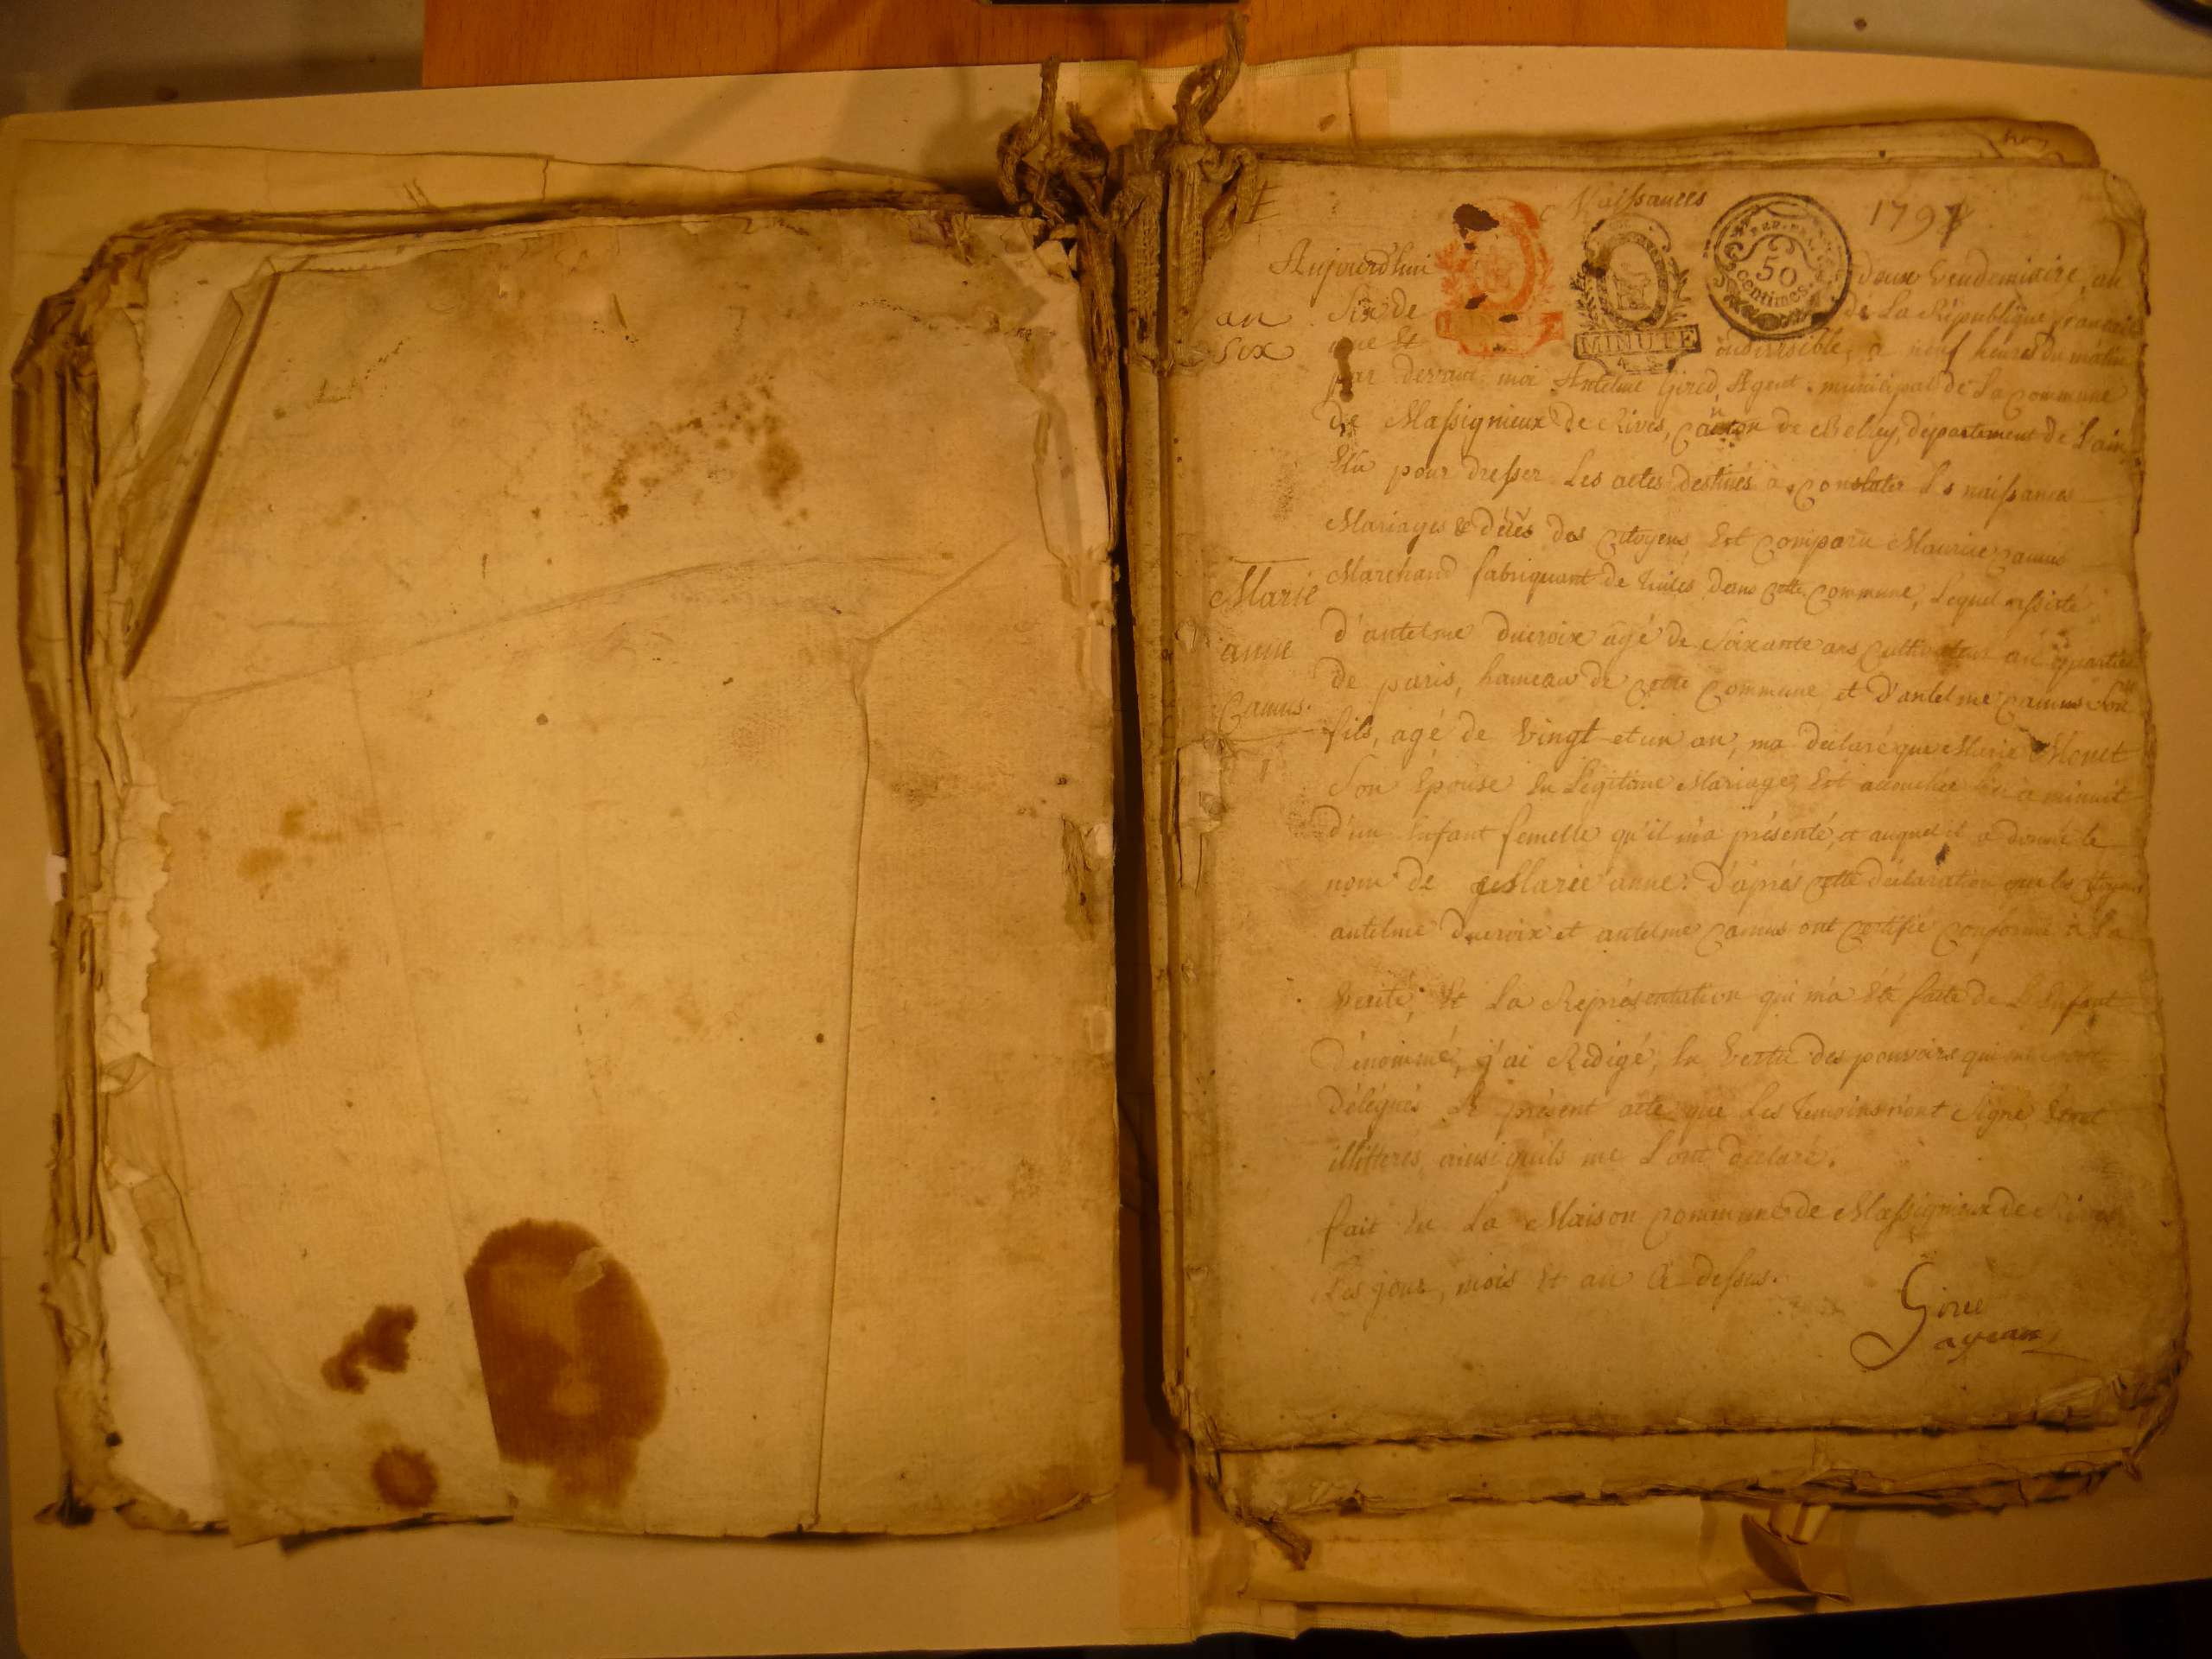 Naissances
1797
REP. FRA.
50
centimes.
MINUTE
Aujourdhui deux Vendemiaire, an
an
six
Six de de La République française
une Et indivisible, a neuf heures du matin
par devant moi Antelme Gired, Agent municipal de La Commune
de Massignieux de Rives, Canton de Belley, département de L'ain,
Elu pour dresser Les actes destinés a Constater Les naissances
Mariages & déces des Citoyens, Est Comparu Maurice Camus
Marchand fabriquant de tuiles dans Cette Commune, Lequel assisté
Marie
anne
Camus.
d'antelme ducroix agé de Soixante ans Cultivateur
de paris, hameau de Cette Commune et d'antelme Camus Son
fils, agé de Vingt et un an, ma declaré que Marie Monet
Son Epouse En Légitime Mariage, Est accouchée hier a minuit
d'un Enfant femelle qu'il m'a présenté, et auquel il a donné le
nom de Marie anne. d'après Cette déclaration que les Citoyens
antelme ducroix et antelme Camus ont Certifié Conforme à La
Verité, Et La Représentation qui m'a Eté faite de L'Enfant
dénommé, j'ai Rédigé, En Vertu des pouvoirs qui me sont
délégués Le présent acte que Les temoins n'ont Signé Etant
illitteres, ainsi quils me L'ont declaré.
fait En La Maison Commune de Massignieux de Rives
Les jour, mois Et an Ci-dessus.